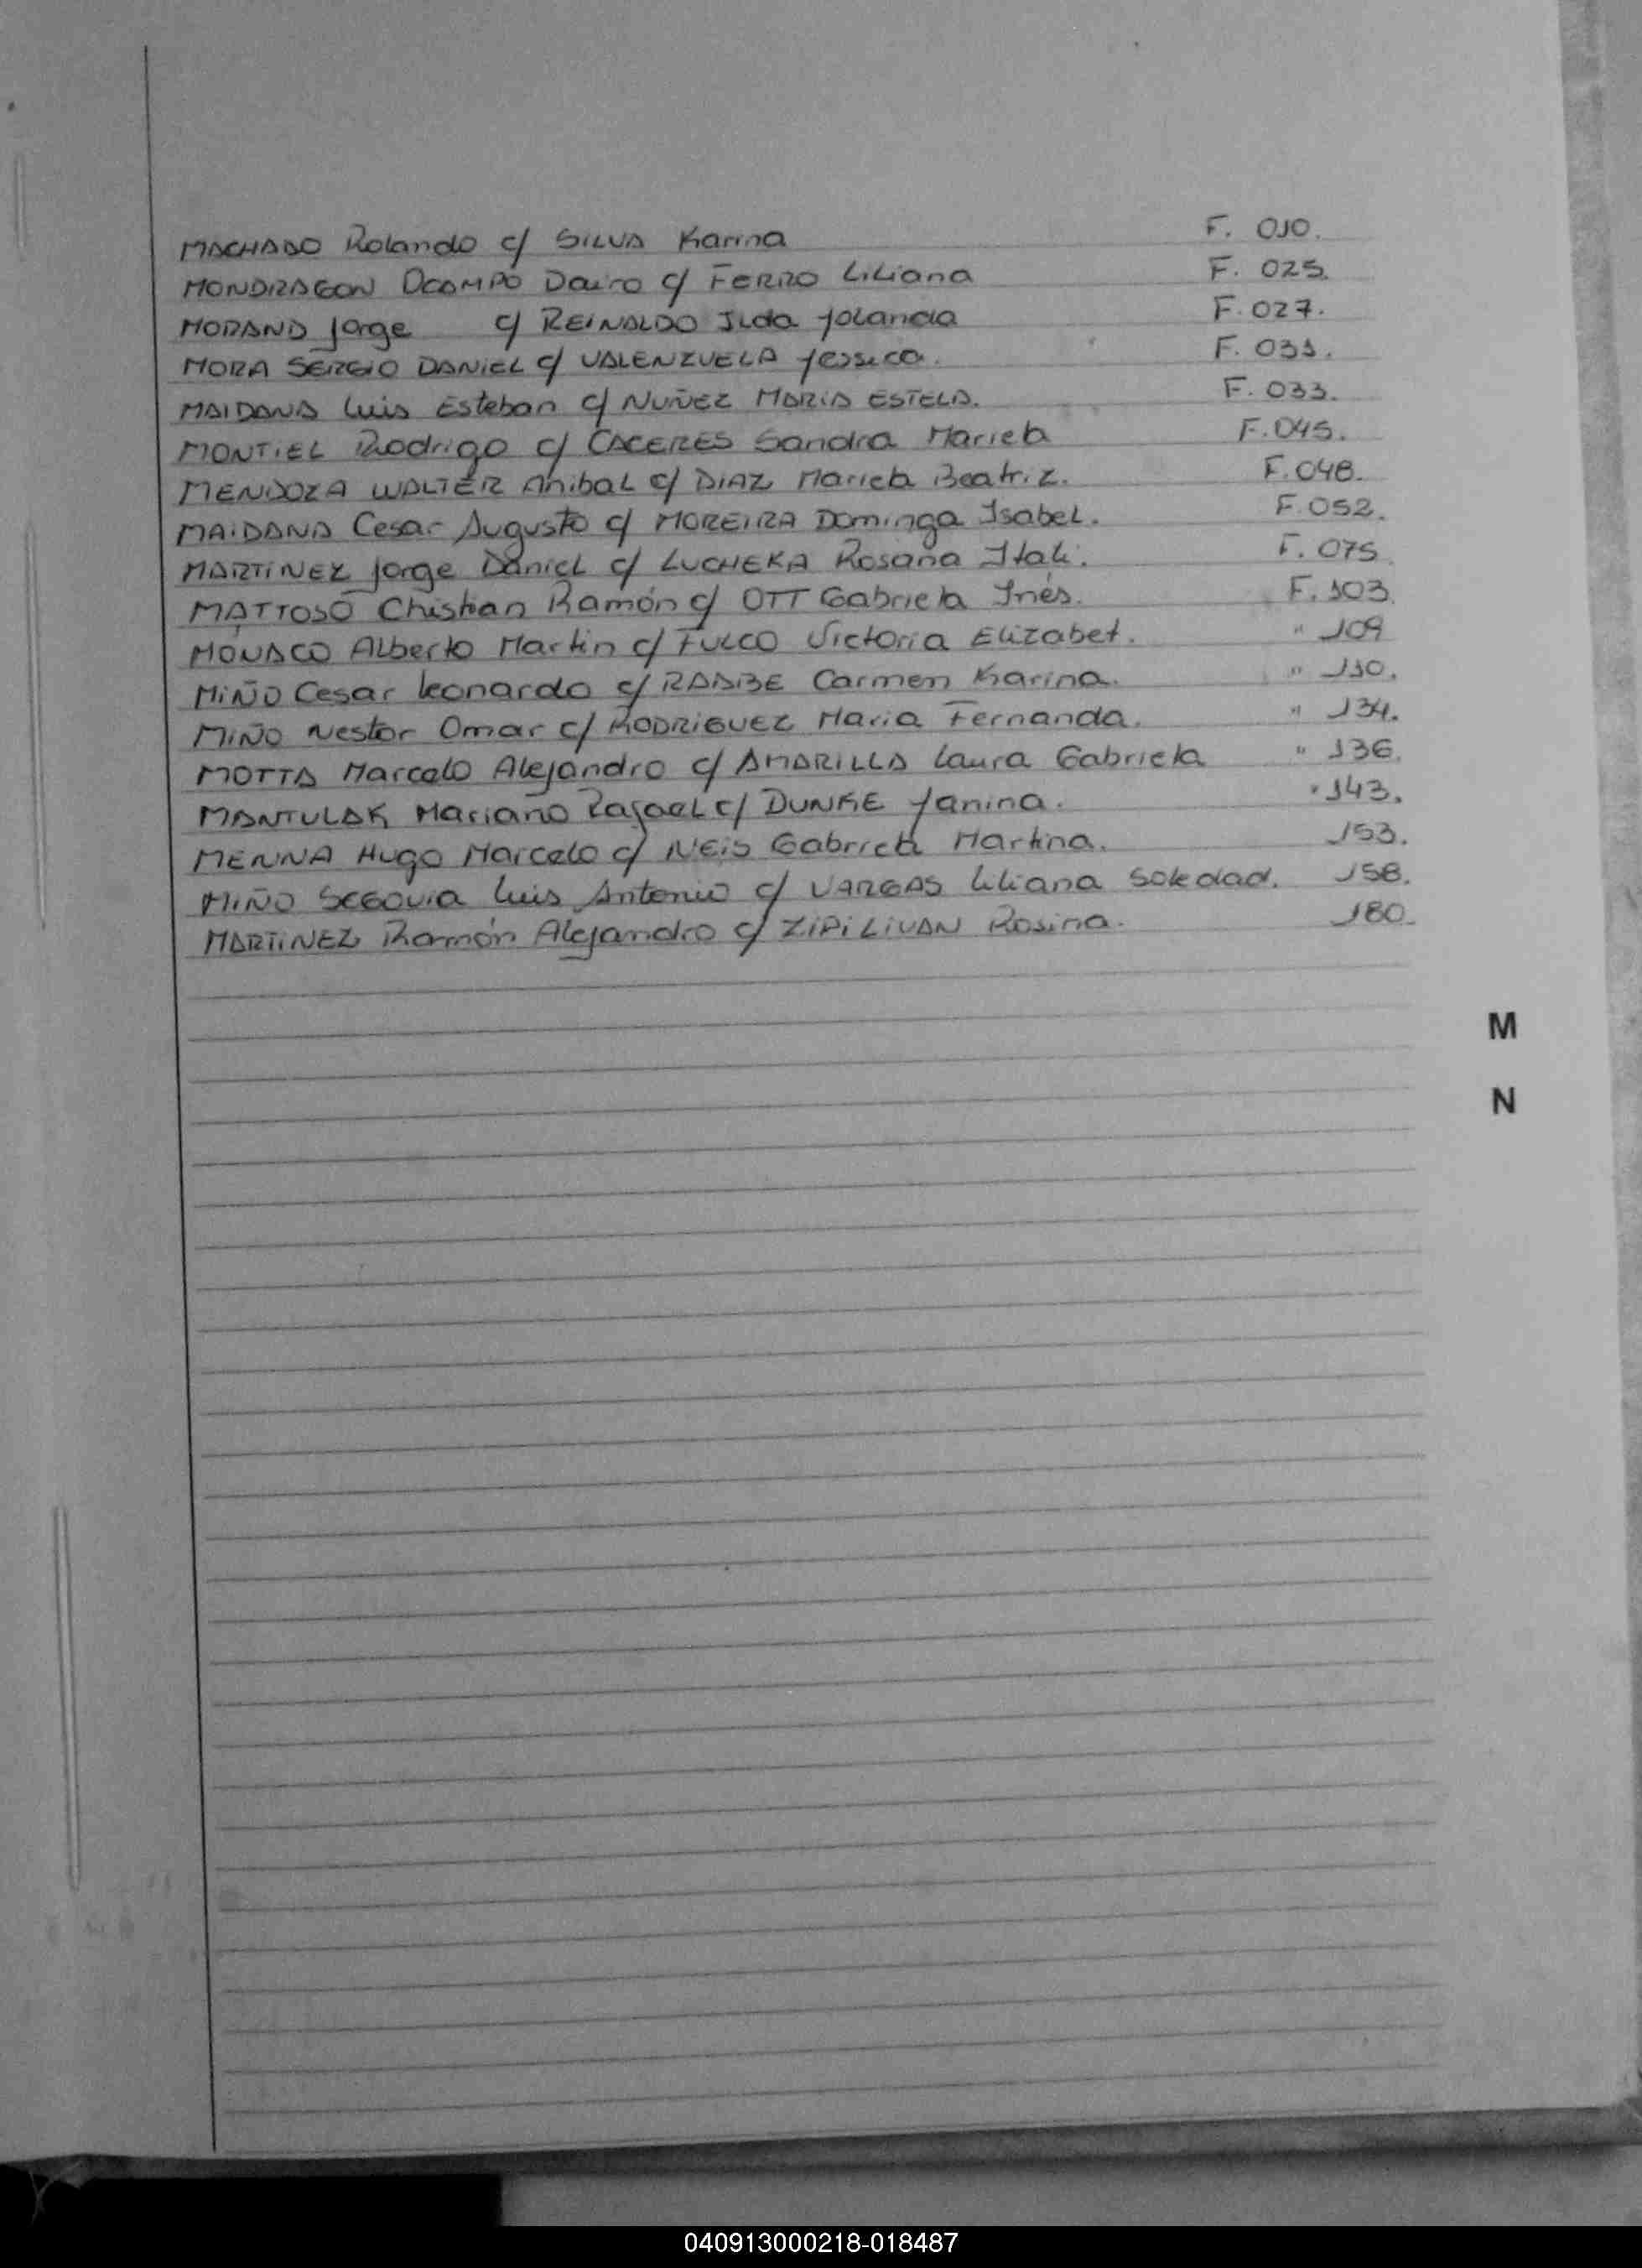 MACHADO Rolando c/ SILVA Karina F. 010.
MONDRAGON OCAMPO Dairo c/ FERRO Liliana F. 025.
MORAND Jorge c/ REINALDO Ilda Yolanda F. 027.
MORA SERGIO DANIEL c/ VALENZUELA Yessica. F. 031.
MAIDANA Luis Esteban c/ NUÑEZ MARIA ESTELA. F. 033.
MONTIEL Rodrigo c/ CACERES Sandra Mariela F. 045.
MENDOZA WALTER Anibal c/ DIAZ Mariela Beatriz. F. 048.
MAIDANA Cesar Augusto c/ MOREIRA Dominga Isabel. F. 052.
MARTINEZ Jorge Daniel c/ LUCHEKA Rosana Itati. F. 075
MATTOSO Chistian Ramón c/ OTT Gabriela Inés. F. 103
MONACO Alberto Martin c/ FULCO Victoria Elizabet. " 109
MIÑO Cesar Leonardo c/ RAABE Carmen Karina. " 110.
MIÑO Nestor Omar c/ RODRIGUEZ Maria Fernanda. " 134.
MOTTA Marcelo Alejandro c/ AMARILLA Laura Gabriela " 136.
MANTULAK Mariano Rafael c/ DUNKE Yanina. " 143.
MENNA Hugo Marcelo c/ NEIS Gabriela Martina. 153.
MIÑO SEGOVIA Luis Antonio c/ VARGAS Liliana Soledad. 158.
MARTINEZ Ramón Alejandro c/ ZIPILIVAN Rosina. 180.
M
N
040913000218-018487